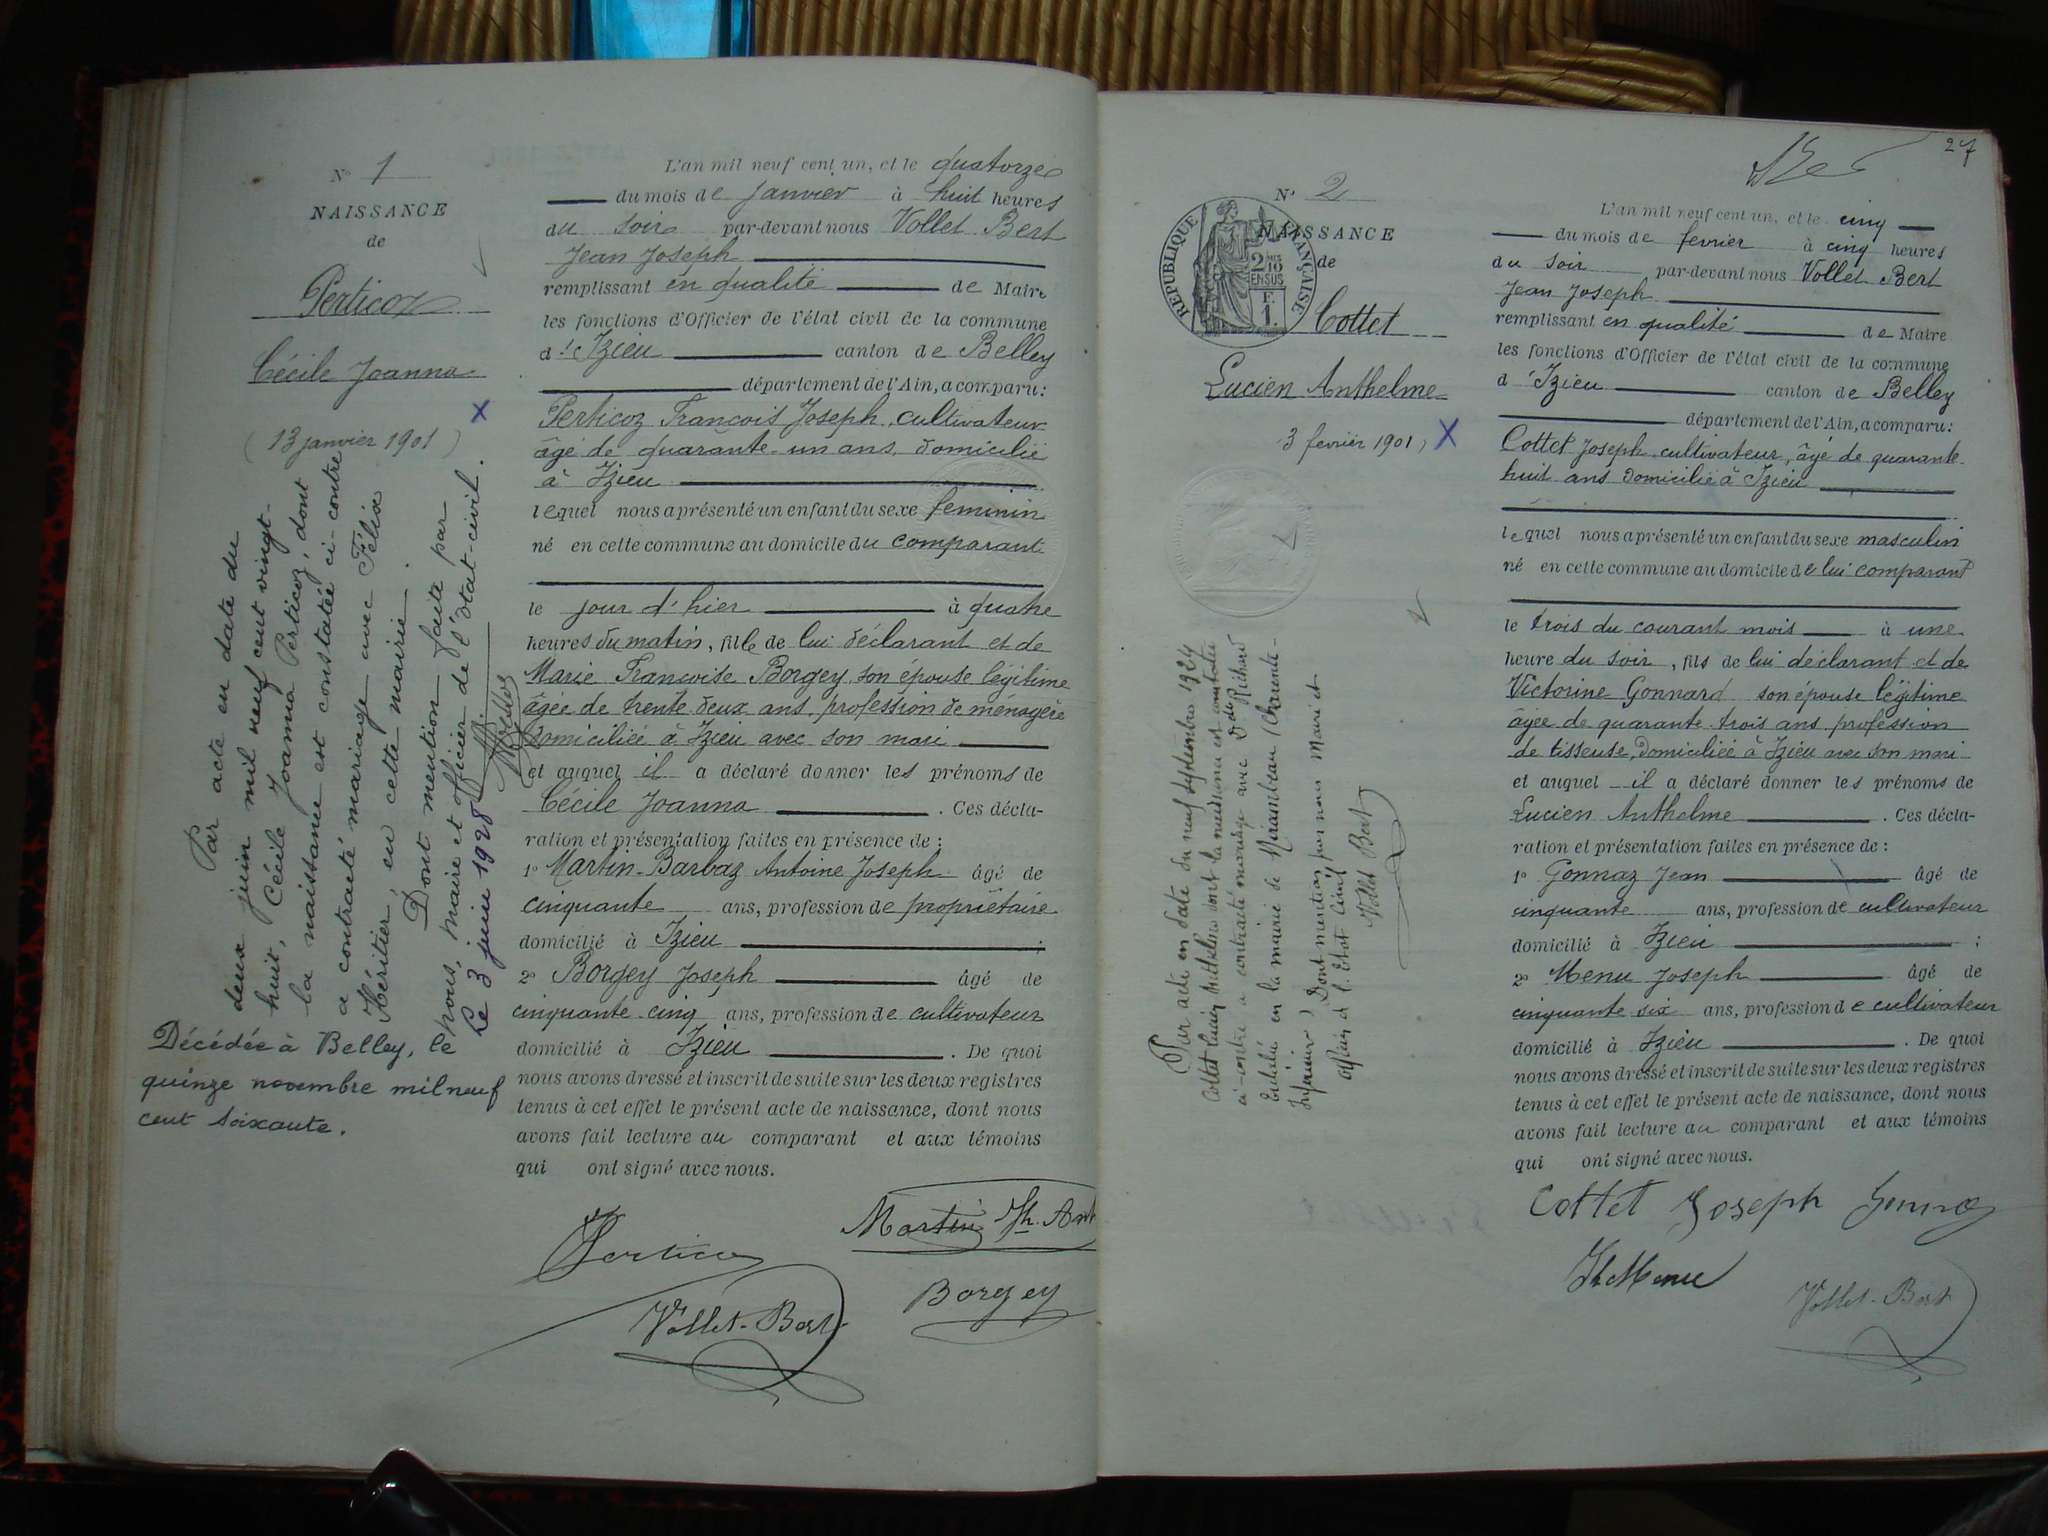 N° 1
NAISSANCE
de
Perticoz
Cécile Joanna
(13 janvier 1901)
Par acte en date du
deux juin mil neuf cent vingt-
huit, Cécile Joanna Perticoz, dont
la naissance est constatée ci-contre
a contracté mariage avec Félix
Héritier, en cette mairie.
Dont mention faite par
nous, maire et officier de l'état-civil.
Le 3 juin 1928
Décédée à Belley, le
quinze novembre mil neuf
cent soixante.
L'an mil neuf cent un, et le quatorze
du mois de janvier à huit heures
du soir par-devant nous Vollet Bert
Jean Joseph
remplissant en qualité de Maire
les fonctions d'Officier de l'état civil de la commune
d'Izieu canton de Belley
département de l'Ain, a comparu:
Perticoz Francois Joseph, cultivateur
âgé de quarante-un ans, domicilié
à Izieu
lequel nous a présenté un enfant du sexe feminin
né en cette commune au domicile du comparant
le jour d'hier à quatre
heures du matin, fille de lui déclarant et de
Marie Francoise Borgey, son épouse légitime
âgée de trente deux ans, profession de ménagère
domiciliée à Izieu avec son mari
et auquel il a déclaré donner les prénoms de
Cécile Joanna . Ces décla-
ration et présentation faites en présence de :
1° Martin-Barbaz Antoine Joseph âgé de
cinquante ans, profession de propriétaire
domicilié à Izieu ;
2° Borgey Joseph âgé de
cinquante cinq ans, profession de cultivateur
domicilié à Izieu . De quoi
nous avons dressé et inscrit de suite sur les deux registres
tenus à cet effet le présent acte de naissance, dont nous
avons fait lecture au comparant et aux témoins
qui ont signé avec nous.
Perticoz
Martin Jh. Ant
Vollet-Bert
Borgey
27
N° 2
NAISSANCE
de
RÉPUBLIQUE FRANÇAISE
2/10 EN SUS
F. 1.
Cottet
Lucien Anthelme
(3 fevrier 1901)
Par acte en date du neuf septembre 1924
Cottet Lucien Anthelme dont la naissance est constatée
ci-contre a contracté mariage avec Richard
en la mairie de Mirambeau (Charente-
Inférieure) Dont mention, par nous Maire et
officier de l'Etat Civil
Vollet Bert
L'an mil neuf cent un, et le cinq
du mois de fevrier à cinq heures
du soir par-devant nous Vollet Bert
Jean Joseph
remplissant en qualité de Maire
les fonctions d'Officier de l'état civil de la commune
d'Izieu canton de Belley
département de l'Ain, a comparu:
Cottet Joseph, cultivateur, âgé de quarante
huit ans domicilié à Izieu
lequel nous a présenté un enfant du sexe masculin
né en cette commune au domicile de lui comparant
le trois du courant mois à une
heure du soir, fils de lui déclarant et de
Victorine Gonnard son épouse légitime
âgée de quarante trois ans profession
de tisseuse, domiciliée à Izieu avec son mari
et auquel il a déclaré donner les prénoms de
Lucien Anthelme . Ces décla-
ration et présentation faites en présence de :
1° Gonnaz Jean âgé de
cinquante ans, profession de cultivateur
domicilié à Izieu ;
2° Menu Joseph âgé de
cinquante six ans, profession de cultivateur
domicilié à Izieu . De quoi
nous avons dressé et inscrit de suite sur les deux registres
tenus à cet effet le présent acte de naissance, dont nous
avons fait lecture au comparant et aux témoins
qui ont signé avec nous.
Cottet Joseph
Jh Menu
Vollet-Bert